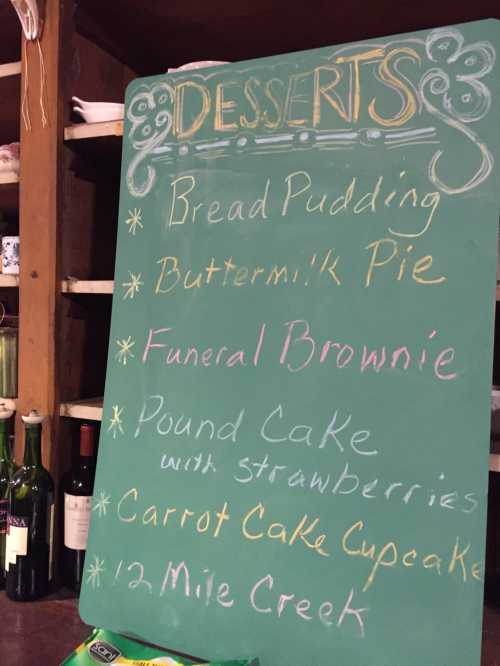 DESSERTS
* Bread Pudding
* Buttermilk Pie
* Funeral Brownie
* Pound Cake
with strawberries
* Carrot Cake Cupcake
* 12 Mile Creek